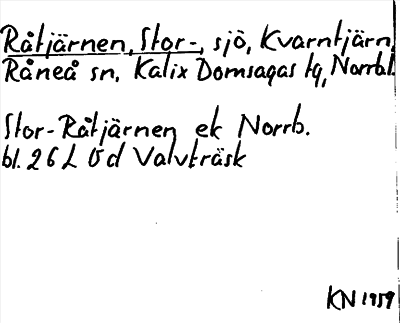 Råtjärnen, Stor-, sjö, Kvarntjärn,
Råneå sn, Kalix Domsagas tg, Norrbl.
Stor-Råtjärnen ek Norrb.
bl. 26 L 0d Valvträsk
KN 1959